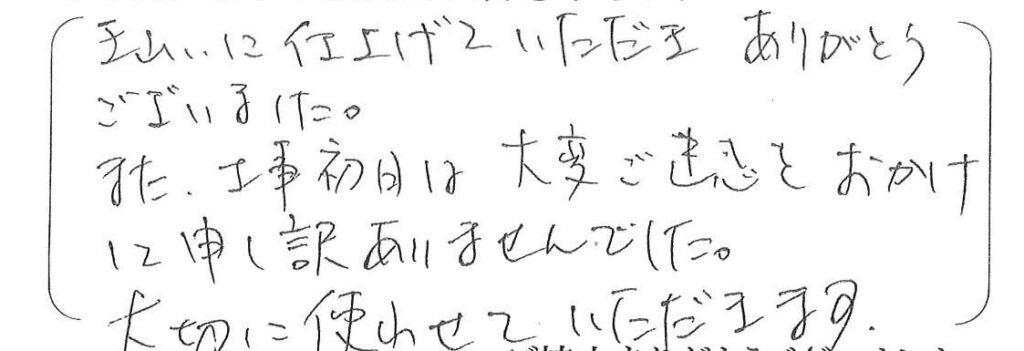 きれいに仕上げていただき ありがとう
ございました。
また、工事初日は 大変ご迷惑をおかけ
に申し訳ありませんでした。
大切に使わせて いただきます.